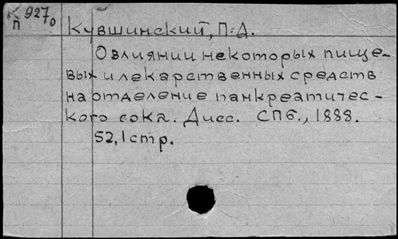 К 927о
п
Кувшинский, П.Д.
О влиянии некоторых пище-
вых и лекарственных средств
на отделение панкреатичес-
кого сока. Дисс. СПб., 1888.
52, 1 стр.